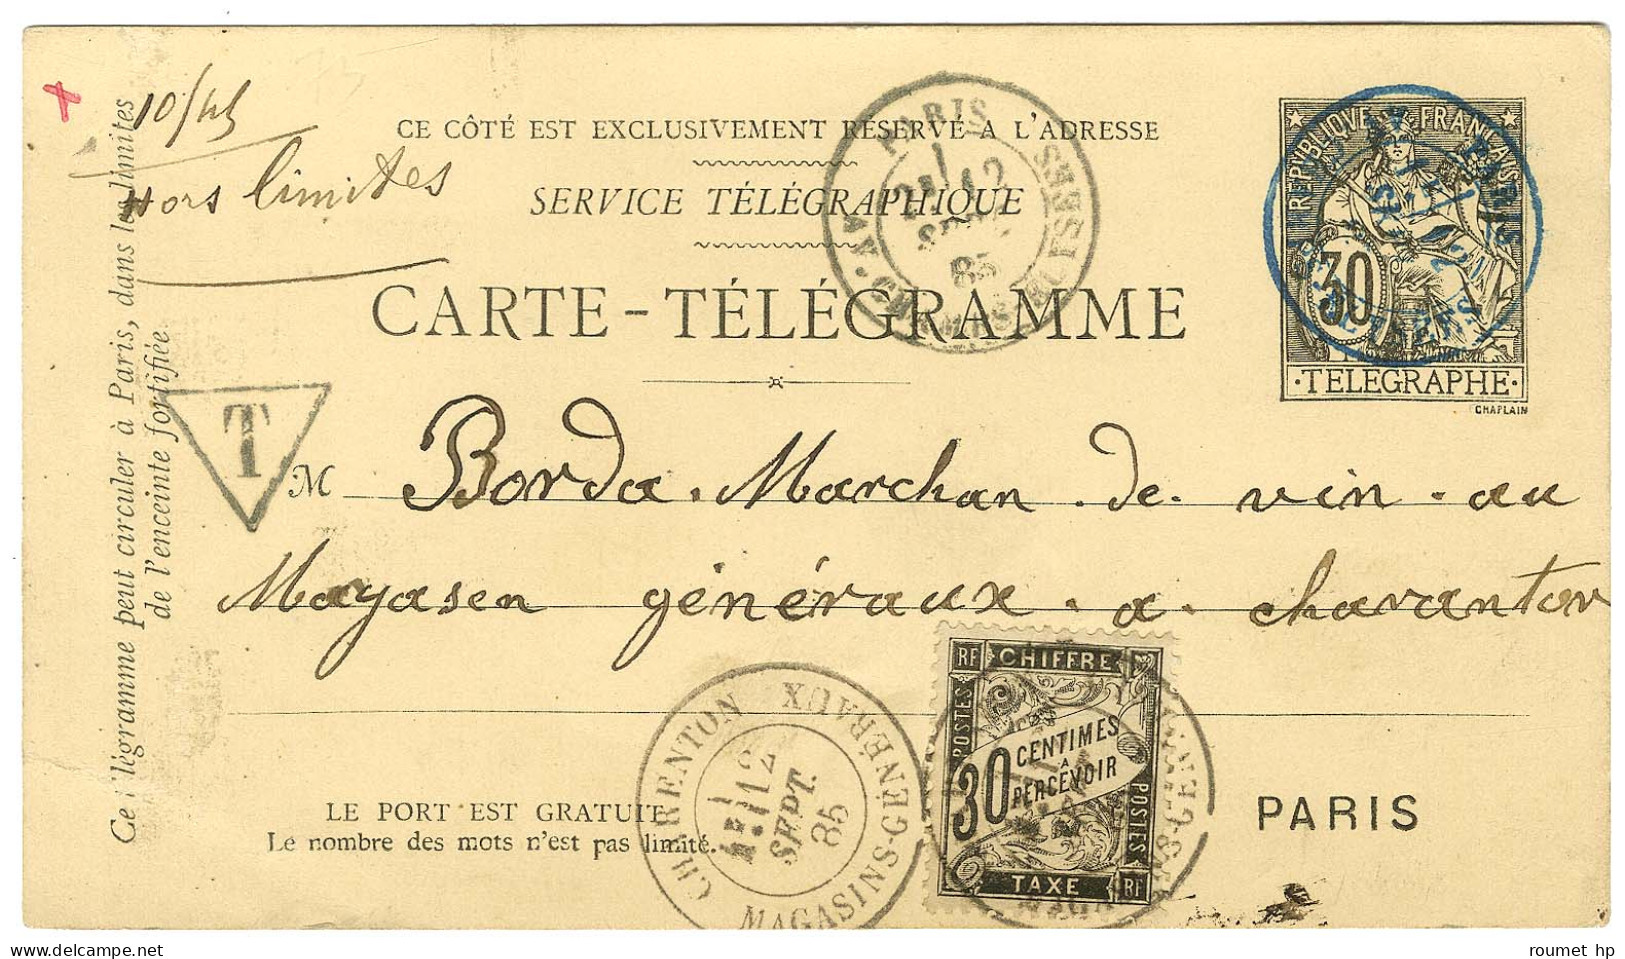 10/45
Hors limites
CE CÔTÉ EST EXCLUSIVEMENT RÉSERVÉ A L'ADRESSE
SERVICE TÉLÉGRAPHIQUE
CARTE-TÉLÉGRAMME
PARIS
12
SEPT
85
REPUBLIQUE FRANÇAISE
30
·TELEGRAPHE·
CHAPLAIN
Ce télégramme peut circuler à Paris, dans les limites
de l'enceinte fortifiée
T
M Borda. Marchan. de. vin. au
Mayasen généraux. a. charanton
CHARENTON
MAGASINS-GÉNÉRAUX
12
SEPT.
85
RF CHIFFRE
POSTES
30 CENTIMES
A
PERCEVOIR
POSTES
TAXE RF
LE PORT EST GRATUIT
Le nombre des mots n'est pas limité.
PARIS
roumet hp